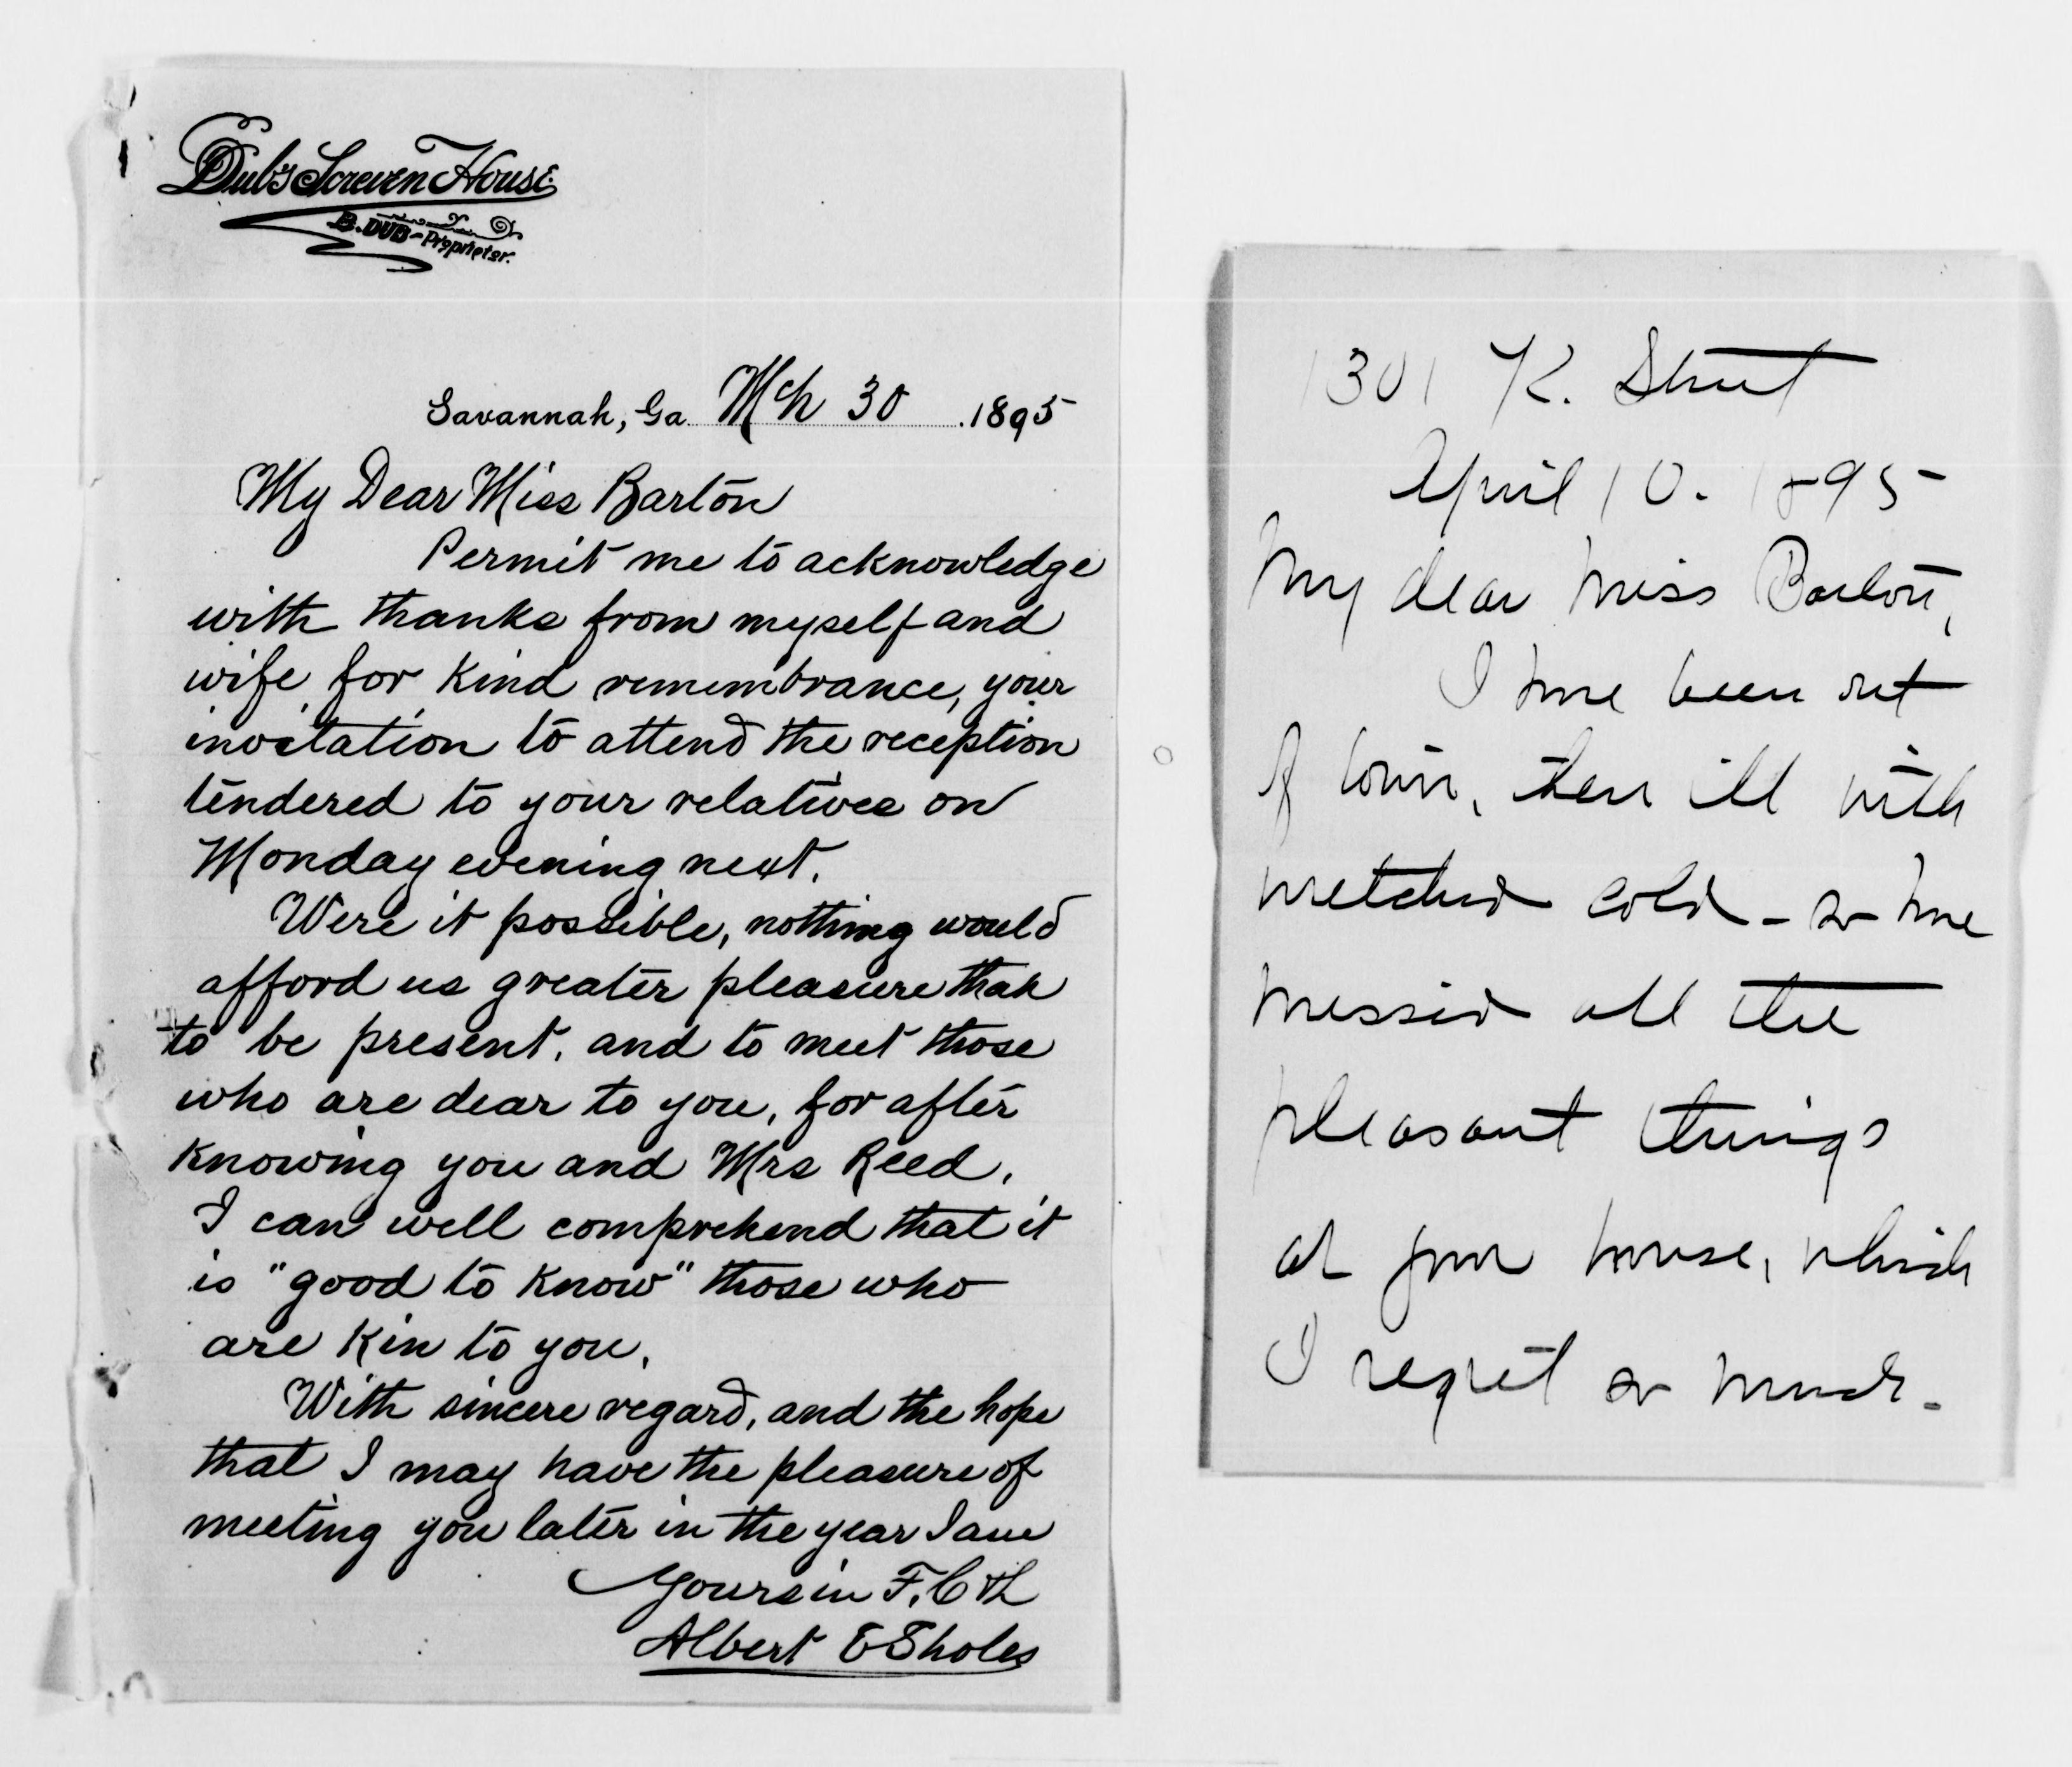 Dub's Screven House
B. DUB - Proprietor.
Savannah, Ga. Mch 30 1895
My Dear Miss Barton
Permit me to acknowledge
with thanks from myself and
wife, for kind remembrance, your
invitation to attend the reception
tendered to your relatives on
Monday evening next.
Were it possible, nothing would
afford us greater pleasure than
to be present, and to meet those
who are dear to you, for after
knowing you and Mrs Reed,
I can well comprehend that it
is "good to know" those who
are kin to you.
With sincere regard, and the hope
that I may have the pleasure of
meeting you later in the year I am
Yours in F. C & L
Albert E Sholes
1301 K. Street
April 10. 1895
My dear Miss Barton,
I have been out
of town, then ill with
wretched cold - so have
missed all the
pleasant things
at your house, which
I regret so much -